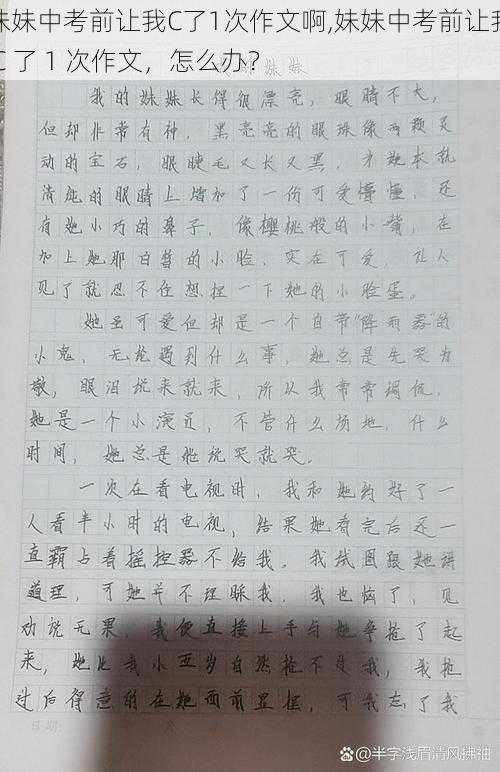 妹妹中考前让我C了1次作文啊,妹妹中考前让我
C了1次作文，怎么办？
妹妹
我的妹妹长得很漂亮，眼睛不大，
但却非常有神，黑亮亮的眼珠像两颗灵
动的宝石，眼睫毛又长又黑，为她本就
清纯的眼睛上增加了一份可爱懵懂，还
有她小巧的鼻子，像樱桃般的小嘴，在
加上她那白皙的小脸，实在可爱，让人
见了就忍不住想捏一下她的小脸蛋。
她虽可爱但却是一个自带"降雨器"的
小鬼，无论遇到什么事，她总是先哭为
敬，眼泪说来就来，所以我常常调侃，
她是一个小演员，不管什么场地，什么
时间，她总是她说哭就哭。
一次在看电视时，我和她约好了一
人看半小时的电视，结果她看完后还一
直霸占着摇控器不给我。我试图跟她讲
道理，可她并不理睬我，我也恼了，见
劝说无果，我便直接上手与她争抢了起
来，她比我小五岁自然抢不过我，我抢
过后得意的在她面前显摆，可我忘了我
日期：
@半字浅眉清风拂袖